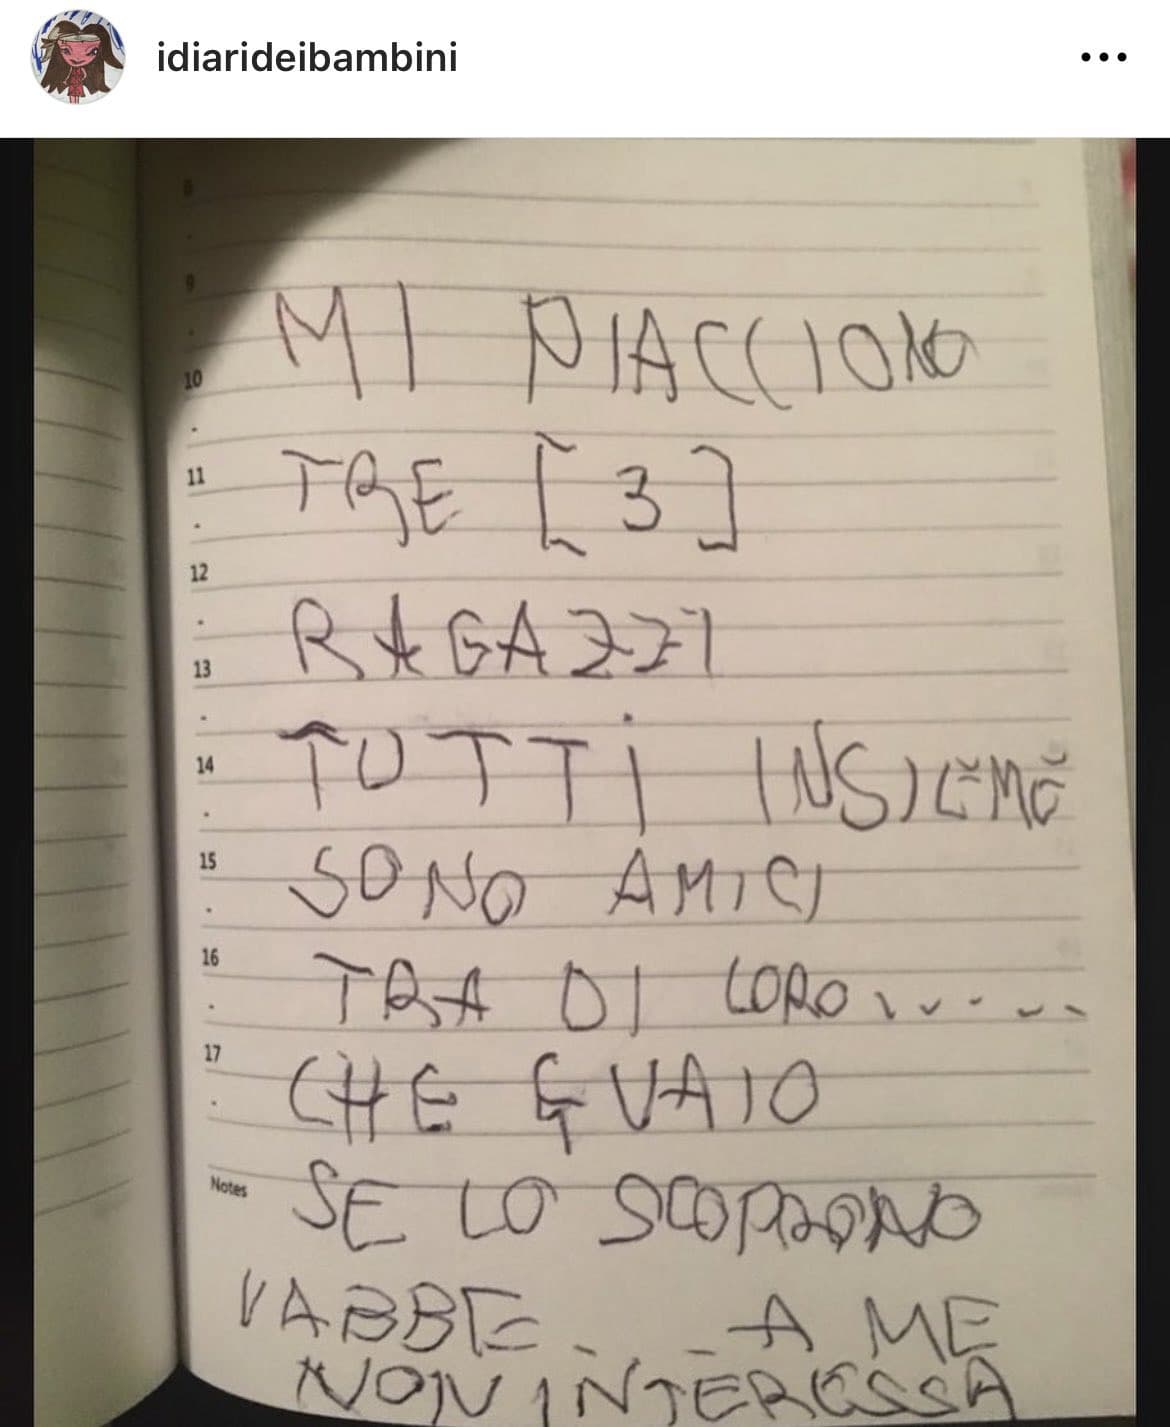 idiarideibambini
8
9
MI PIACCIONO
10
11 TRE [3]
12
RAGAZZI
13
14 TUTTI INSIEME
15 SONO AMICI
16 TRA DI LORO.....
17
CHE GUAIO
Notes SE LO SCOPRONO
VABBE... A ME
NON INTERESSA